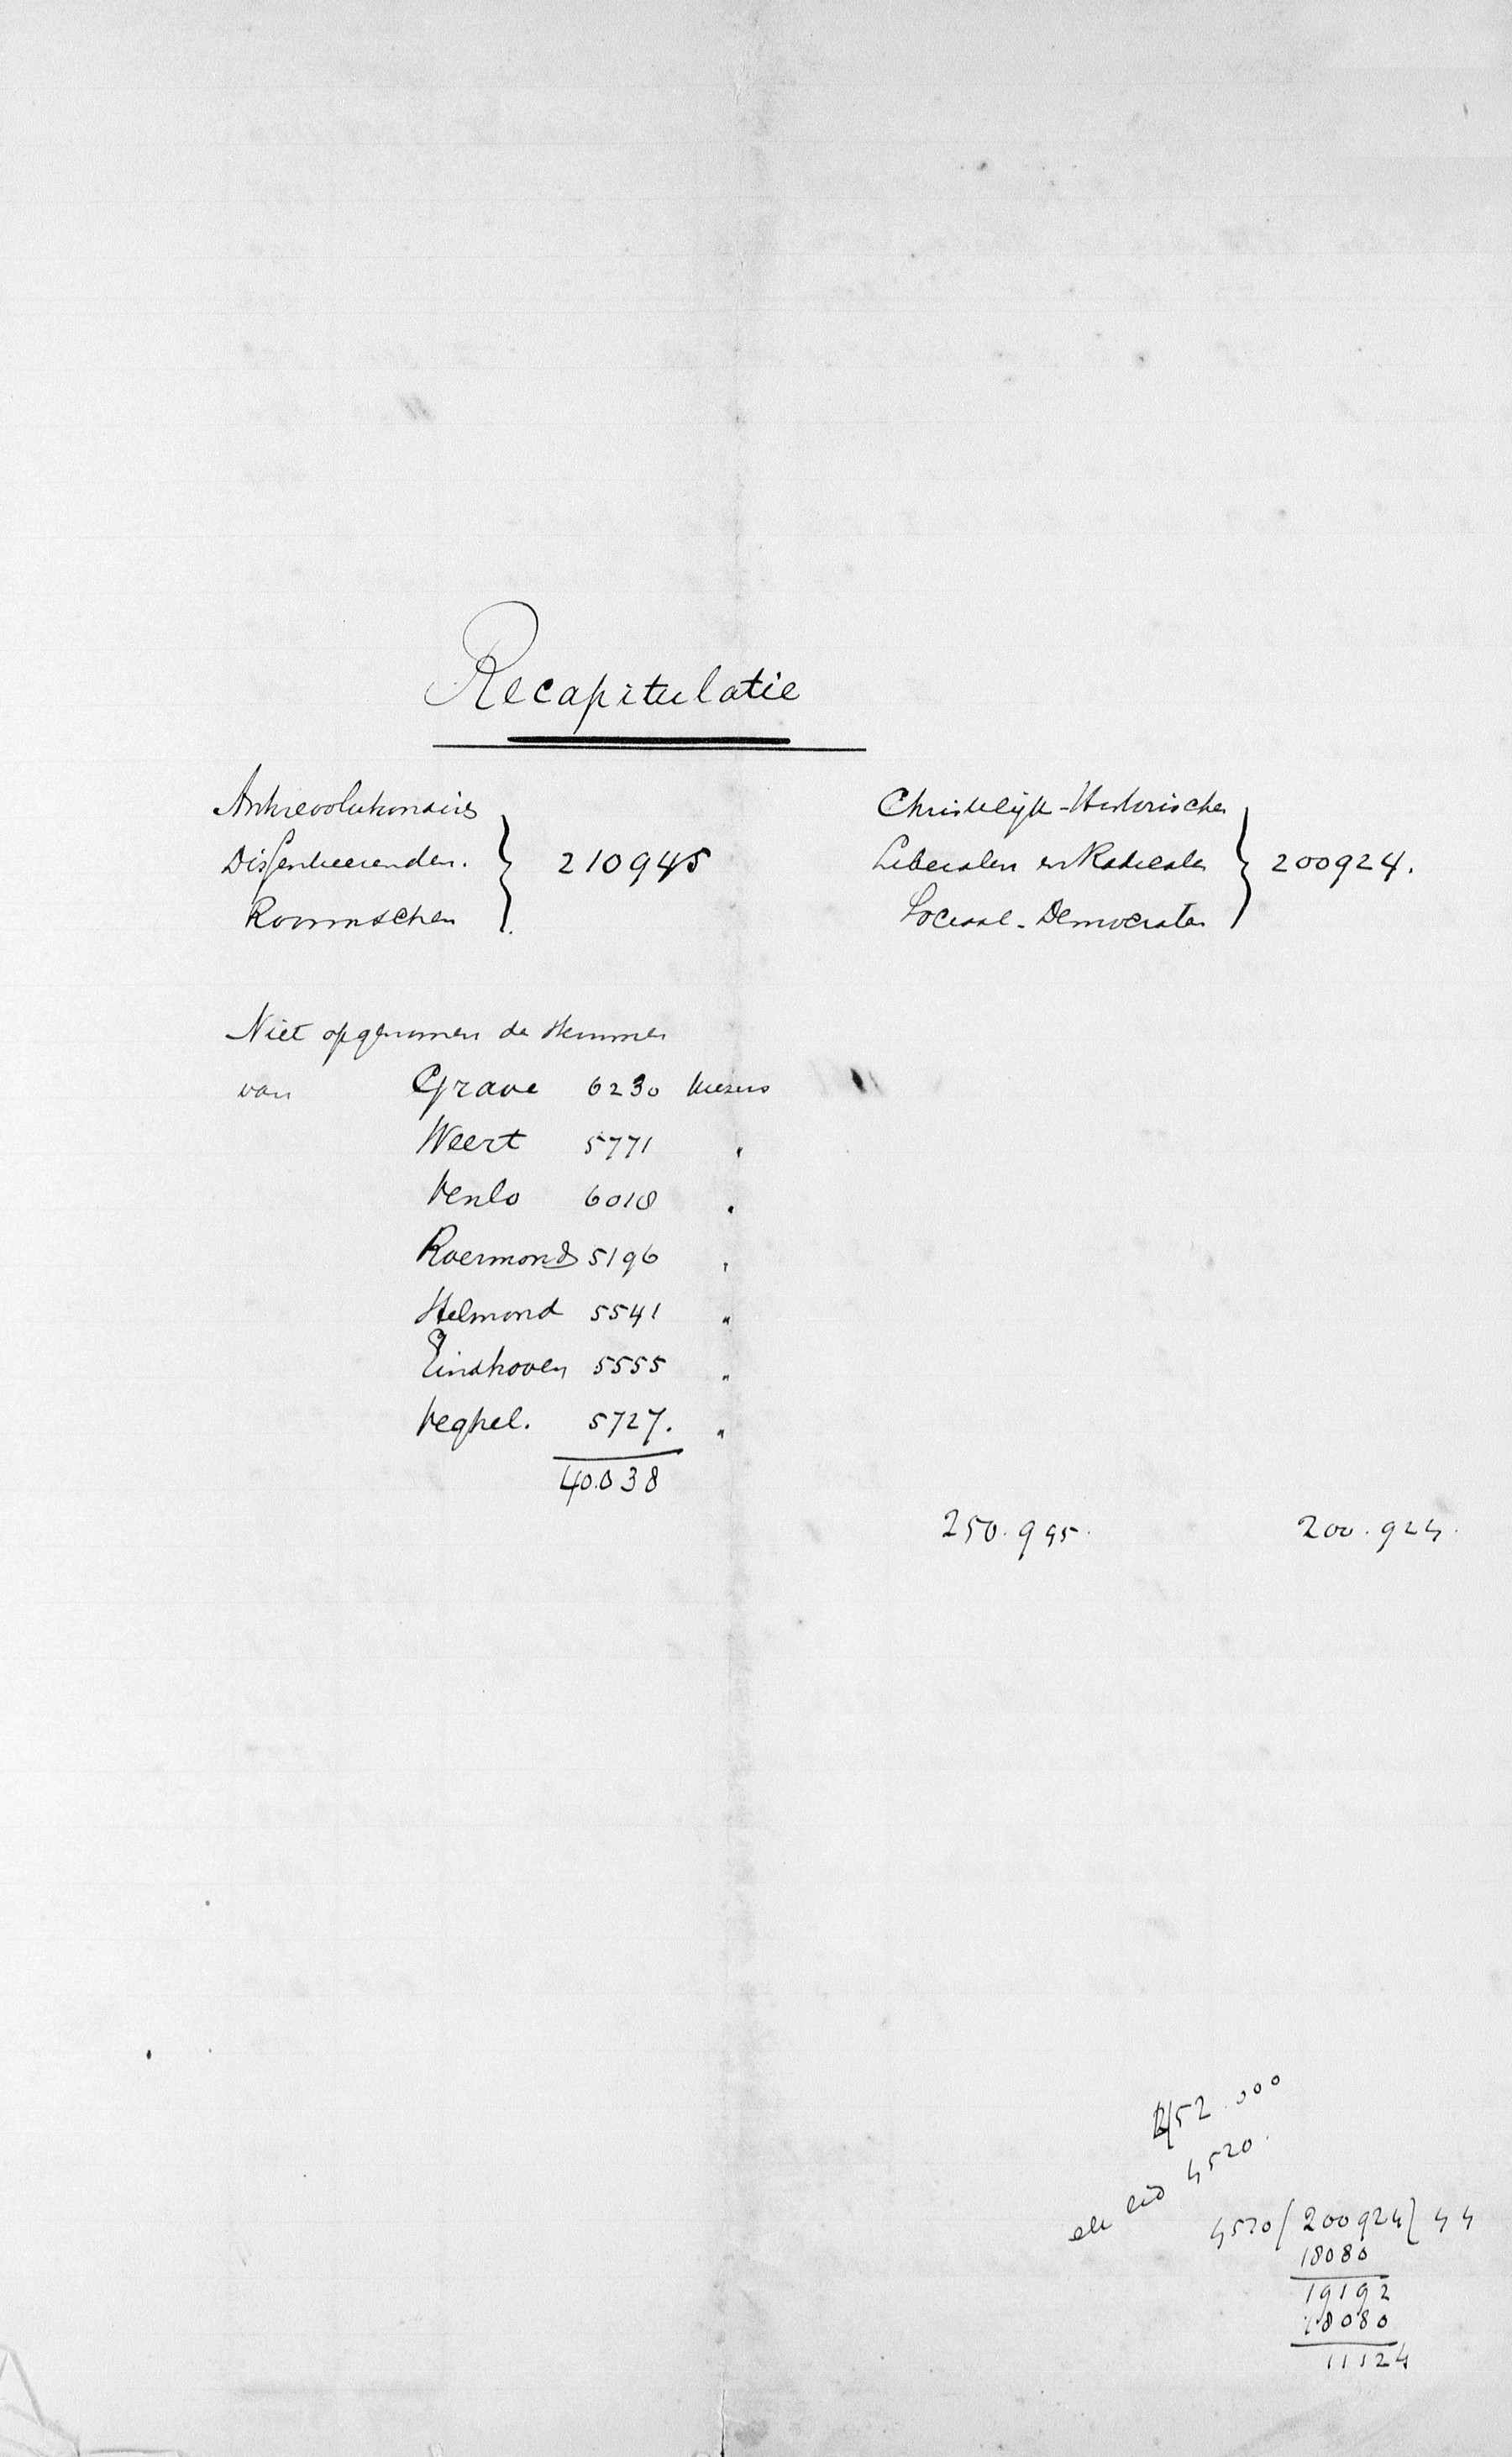 Recapitulatie
Antirevolutionairs
Dissenteerenden.
Roomschen
} 210945
Christelijk-Historischen
Liberalen en Radicalen
Sociaal-Democraten
} 200924.
Niet opgenomen de stemmen
van Grave 6230 kiezers
Weert 5771 "
Venlo 6018 "
Roermond 5196 "
Helmond 5541 "
Eindhoven 5555 "
Veghel. 5727. "
40.038
250.995. 200.924.
452.000
elk lid 4520.
4520/200924/44
18080
19192
18080
11124